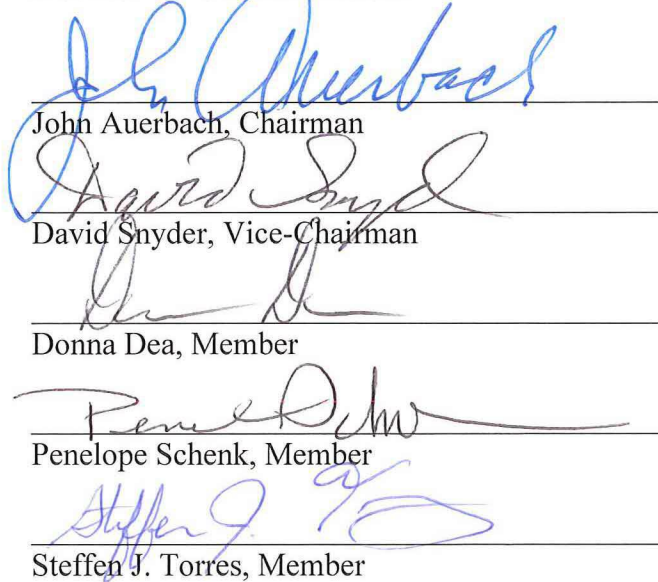 John Auerbach
John Auerbach, Chairman
David Snyd
David Snyder, Vice-Chairman
Donna Dea, Member
Penelope Schenk, Member
Steffen J.
Steffen J. Torres, Member